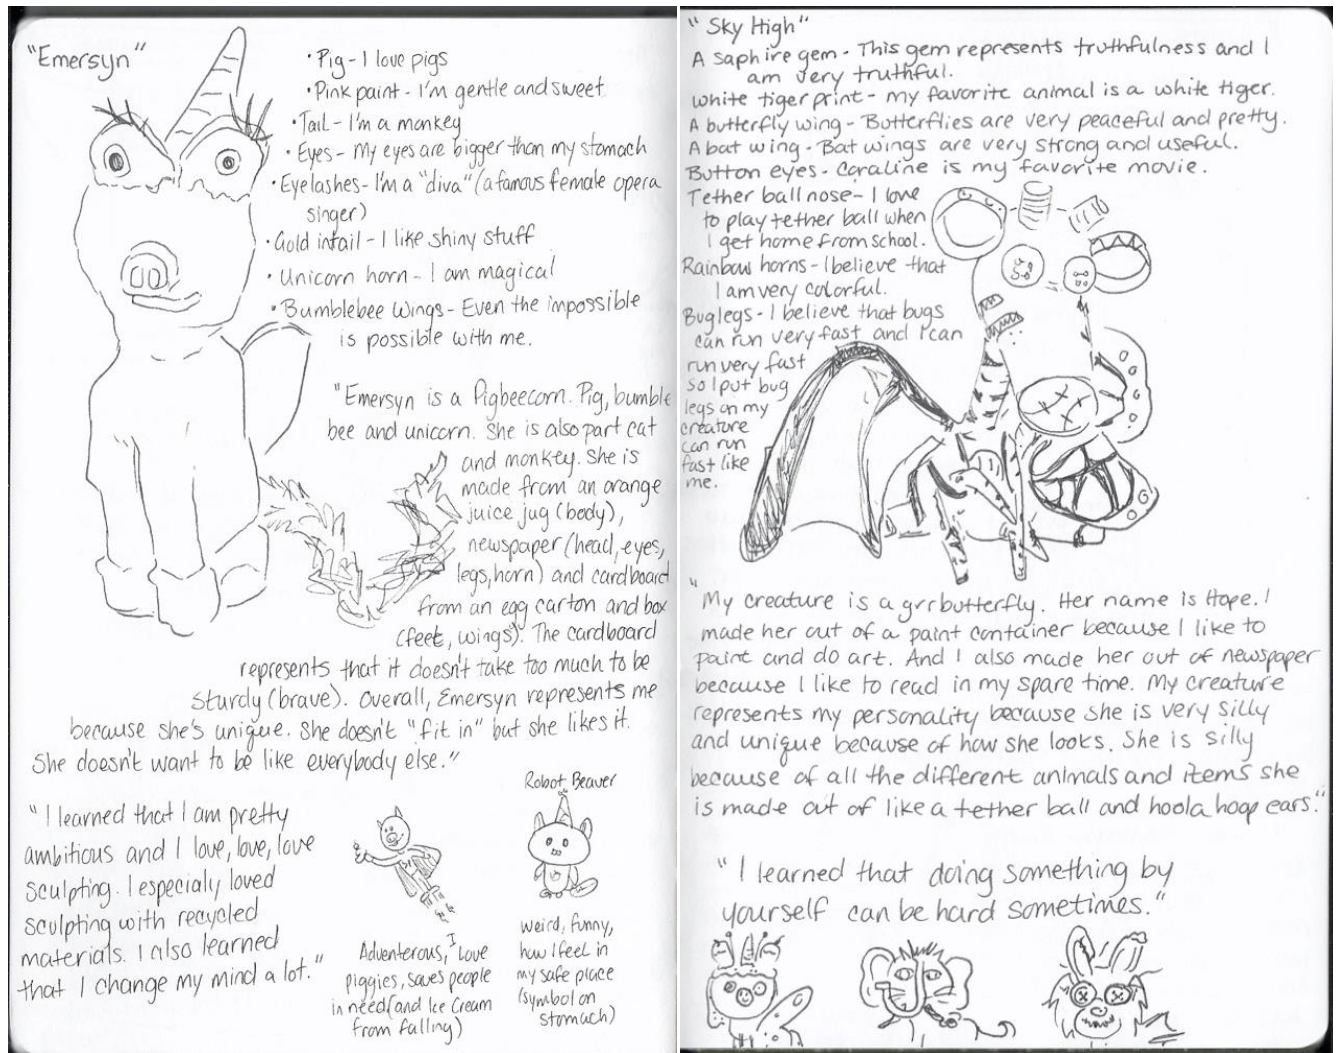 "Emersyn"
• Pig - I love pigs
• Pink paint - I'm gentle and sweet
• Tail - I'm a monkey
• Eyes - My eyes are bigger than my stomach
• Eyelashes - I'm a "diva" (a famous female opera
singer)
• Gold in tail - I like shiny stuff
• Unicorn horn - I am magical
• Bumblebee Wings - Even the impossible
is possible with me.
"Emersyn is a Pigbeecorn. Pig, bumble
bee and unicorn. She is also part cat
and monkey. She is
made from an orange
juice jug (body),
newspaper (head, eyes,
legs, horn) and cardboard
from an egg carton and box
(feet, wings). The cardboard
represents that it doesn't take too much to be
sturdy (brave). Overall, Emersyn represents me
because she's unique. She doesn't "fit in" but she likes it.
She doesn't want to be like everybody else."
"I learned that I am pretty
ambitious and I love, love, love
sculpting. I especialy loved
sculpting with recycled
materials. I also learned
that I change my mind a lot."
Adventerous, I love
piggies, saves people
in need (and Ice Cream
from falling)
Robot Beaver
weird, funny,
how I feel in
my safe place
(symbol on
stomach)
"Sky High"
A saphire gem - This gem represents truthfulness and I
am very truthful.
White tiger print - my favorite animal is a white tiger.
A butterfly wing - Butterflies are very peaceful and pretty.
A bat wing - Bat wings are very strong and useful.
Button eyes - Coraline is my favorite movie.
Tether ball nose - I love
to play tether ball when
I get home from school.
Rainbow horns - I believe that
I am very colorful.
Bug legs - I believe that bugs
can run very fast and I can
run very fast
so I put bug
legs on my
creature
can run
fast like
me.
"My creature is a grrbutterfly. Her name is Hope. I
made her out of a paint container because I like to
paint and do art. And I also made her out of newspaper
because I like to read in my spare time. My creature
represents my personality because she is very silly
and unique because of how she looks. She is silly
because of all the different animals and items she
is made out of like a tether ball and hoola hoop ears."
"I learned that doing something by
yourself can be hard sometimes."